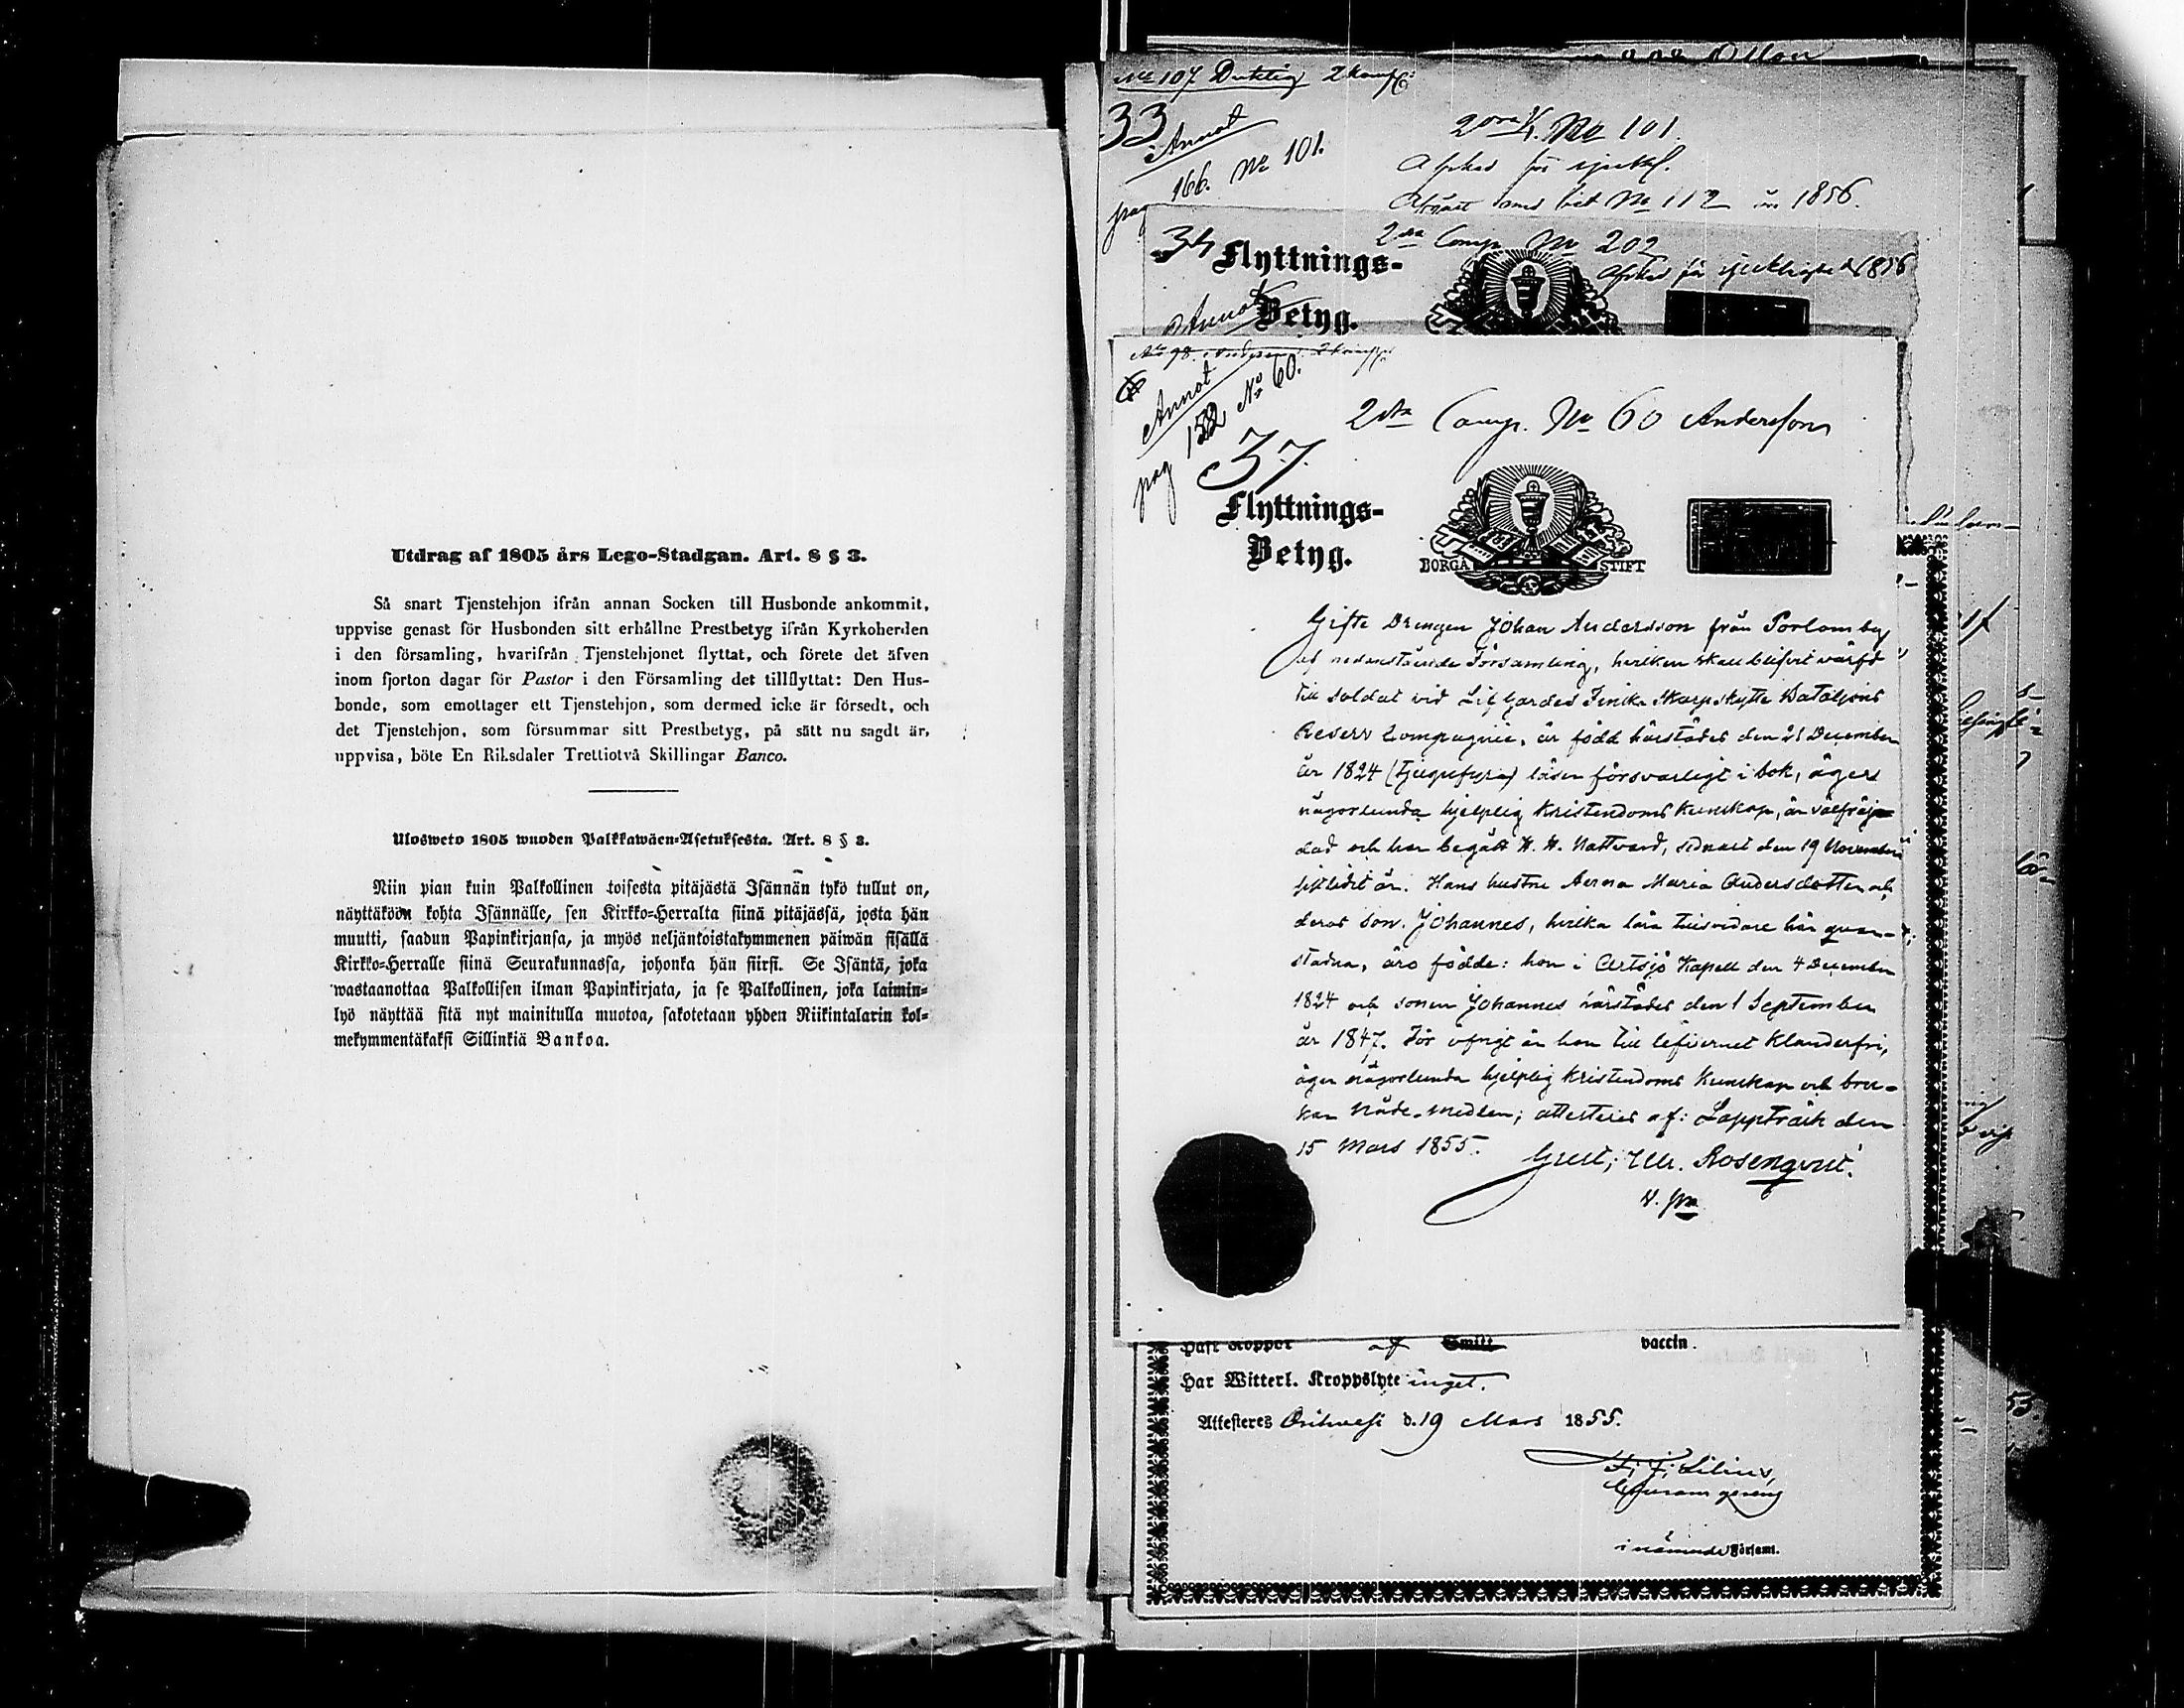 Utdrag af 1805 års Lego-Stadgan. Art. 8 § 3.
Så snart Tjenstehjon ifrån annan Socken till Husbonde ankommit,
uppvise genast för Husbonden sitt erhållne Prestbetyg ifrån Kyrkoherden
i den församling, hvarifrån Tjenstehjonet flyttat, och förete det äfven
inom fjorton dagar för Pastor i den Församling det tillflyttat: Den Hus-
bonde, som emottager ett Tjenstehjon, som dermed icke är försedt, och
det Tjenstehjon, som försummar sitt Prestbetyg, på sätt nu sagdt är,
uppvisa, böte En Riksdaler Trettiotvå Skillingar Banco.
Ulosweto 1805 wuoden Palkkawäen-Asetuksesta. Art. 8 § 3.
Niin pian kuin Palkollinen toisesta pitäjästä Isännän tykö tullut on,
näyttäköön kohta Isännälle, sen Kirkko-Herralta siinä pitäjässä, josta hän
muutti, saadun Papinkirjansa, ja myös neljäntoistakymmenen päiwän sisällä
Kirkko-Herralle siinä Seurakunnassa, johonka hän siirsi. Se Isäntä, joka
wastaanottaa Palkollisen ilman Papinkirjata, ja se Palkollinen, joka laimin-
lyö näyttää sitä nyt mainitulla muotoa, sakotetaan yhden Riikintalarin kol-
mekymmentäkaksi Sillinkiä Bankoa.
No 107 Duktig 2 komp
33
Annot
pag 166. No 101.
No 101.
Afsked för sjukl.
No 112 1856.
34 Flyttnings-
Betyg.
Annot
2dra Comp No 202
Afsked för sjuklighet 1856
No 98.
Annot
pag 152 No 60.
37.
2dra Comp. No 60 Andersson
Flyttnings-
Betyg.
BORGÅ STIFT
Gifte Drengen Johan Andersson från Porlomby
af nedanstående Församling, hvilken skall blifvit värfd
till soldat vid Lif Gardes Finska Skarpskytte Bataljons
Reserv Compagnie, är född härstädes den 21 December
år 1824 (tjugufyra) läser försvarligt i bok, äger
någorlunda hjelplig Kristendoms Kunskap, är välfräj-
dad och har begått H. H. Nattvard, sednast den 19 November
sistlidet år. Hans hustru Anna Maria Andersdotter och
deras son Johannes, hvilka lära tillsvidare här qvar-
stadna, äro födde: hon i Artsjö Kapell den 4 December
1824 och sonen Johannes härstädes den 1 September
år 1847. För öfrigt är hon till lefvernet klanderfri,
äger någorlunda hjelplig Kristendoms Kunskap och bru-
kar Nåde-medlen; attesteras af: Lappträsk den
15 Mars 1855.
Gust. Rosenqvist.
Haft Koppor af Smitt vaccin.
Har Witterl. Kroppslyte inget.
Attesteres Orihvesi d. 19 Mars 1855.
Lilius,
i nämnde Församl.